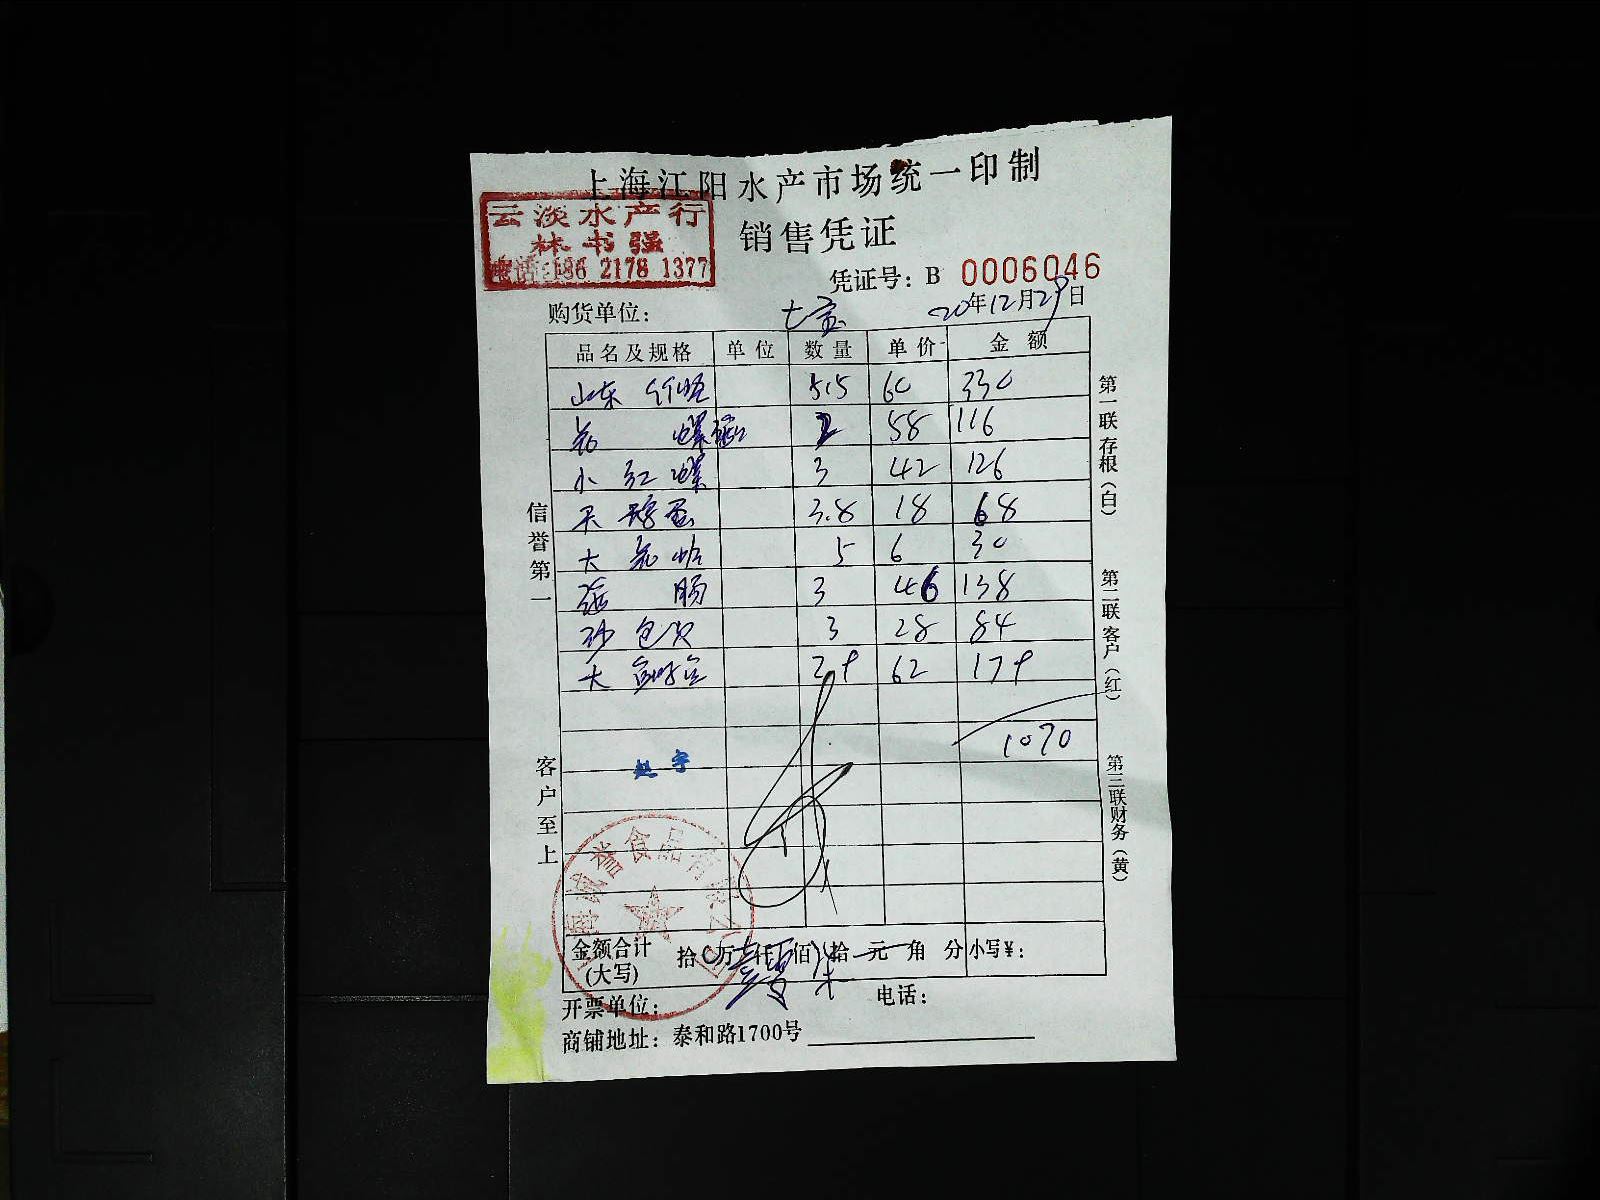 上海江阳水产市场统一印制
云淡水产行
林书强
电话:186 2178 1377
销售凭证
凭证号: B 0006046
购货单位: 七宝 20年12月29日
品名及规格 单位 数量 单价 金额
山东 5.5 60 330
花 螺 2 58 116
小红螺 3 42 126
3.8 18 68
大 5 6 30
海肠 3 46 138
沙包 3 28 84
大 2.9 62 179
1070
赵宇
信誉第一
客户至上
第一联存根(白)
第二联客户(红)
第三联财务(黄)
誉食品有限公司
金额合计(大写) 拾 万 仟 佰 拾 元 角 分 小写¥:
开票单位: 电话:
商铺地址: 泰和路1700号